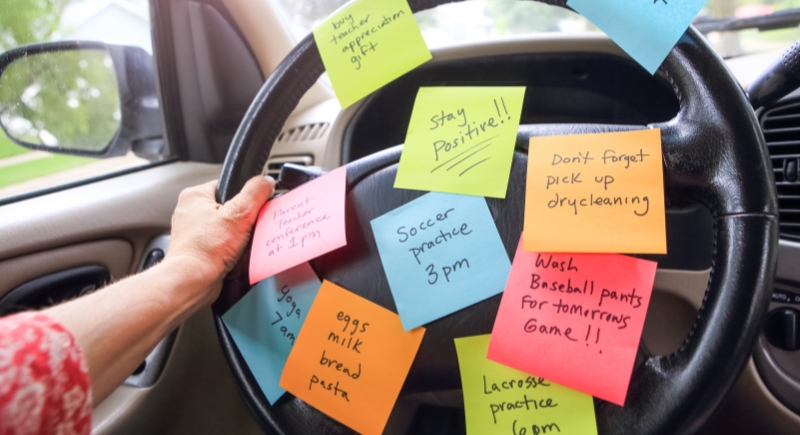 buy
teacher
appreciation
gift
Stay
Positive!!
Don't forget
pick up
drycleaning
Parent
Teacher
conference
at 1pm
Soccer
practice
3pm
Wash
Baseball pants
For tomorrows
Game!!
yoga
7am
eggs
milk
bread
pasta
Lacrosse
practice
6pm
AUTO